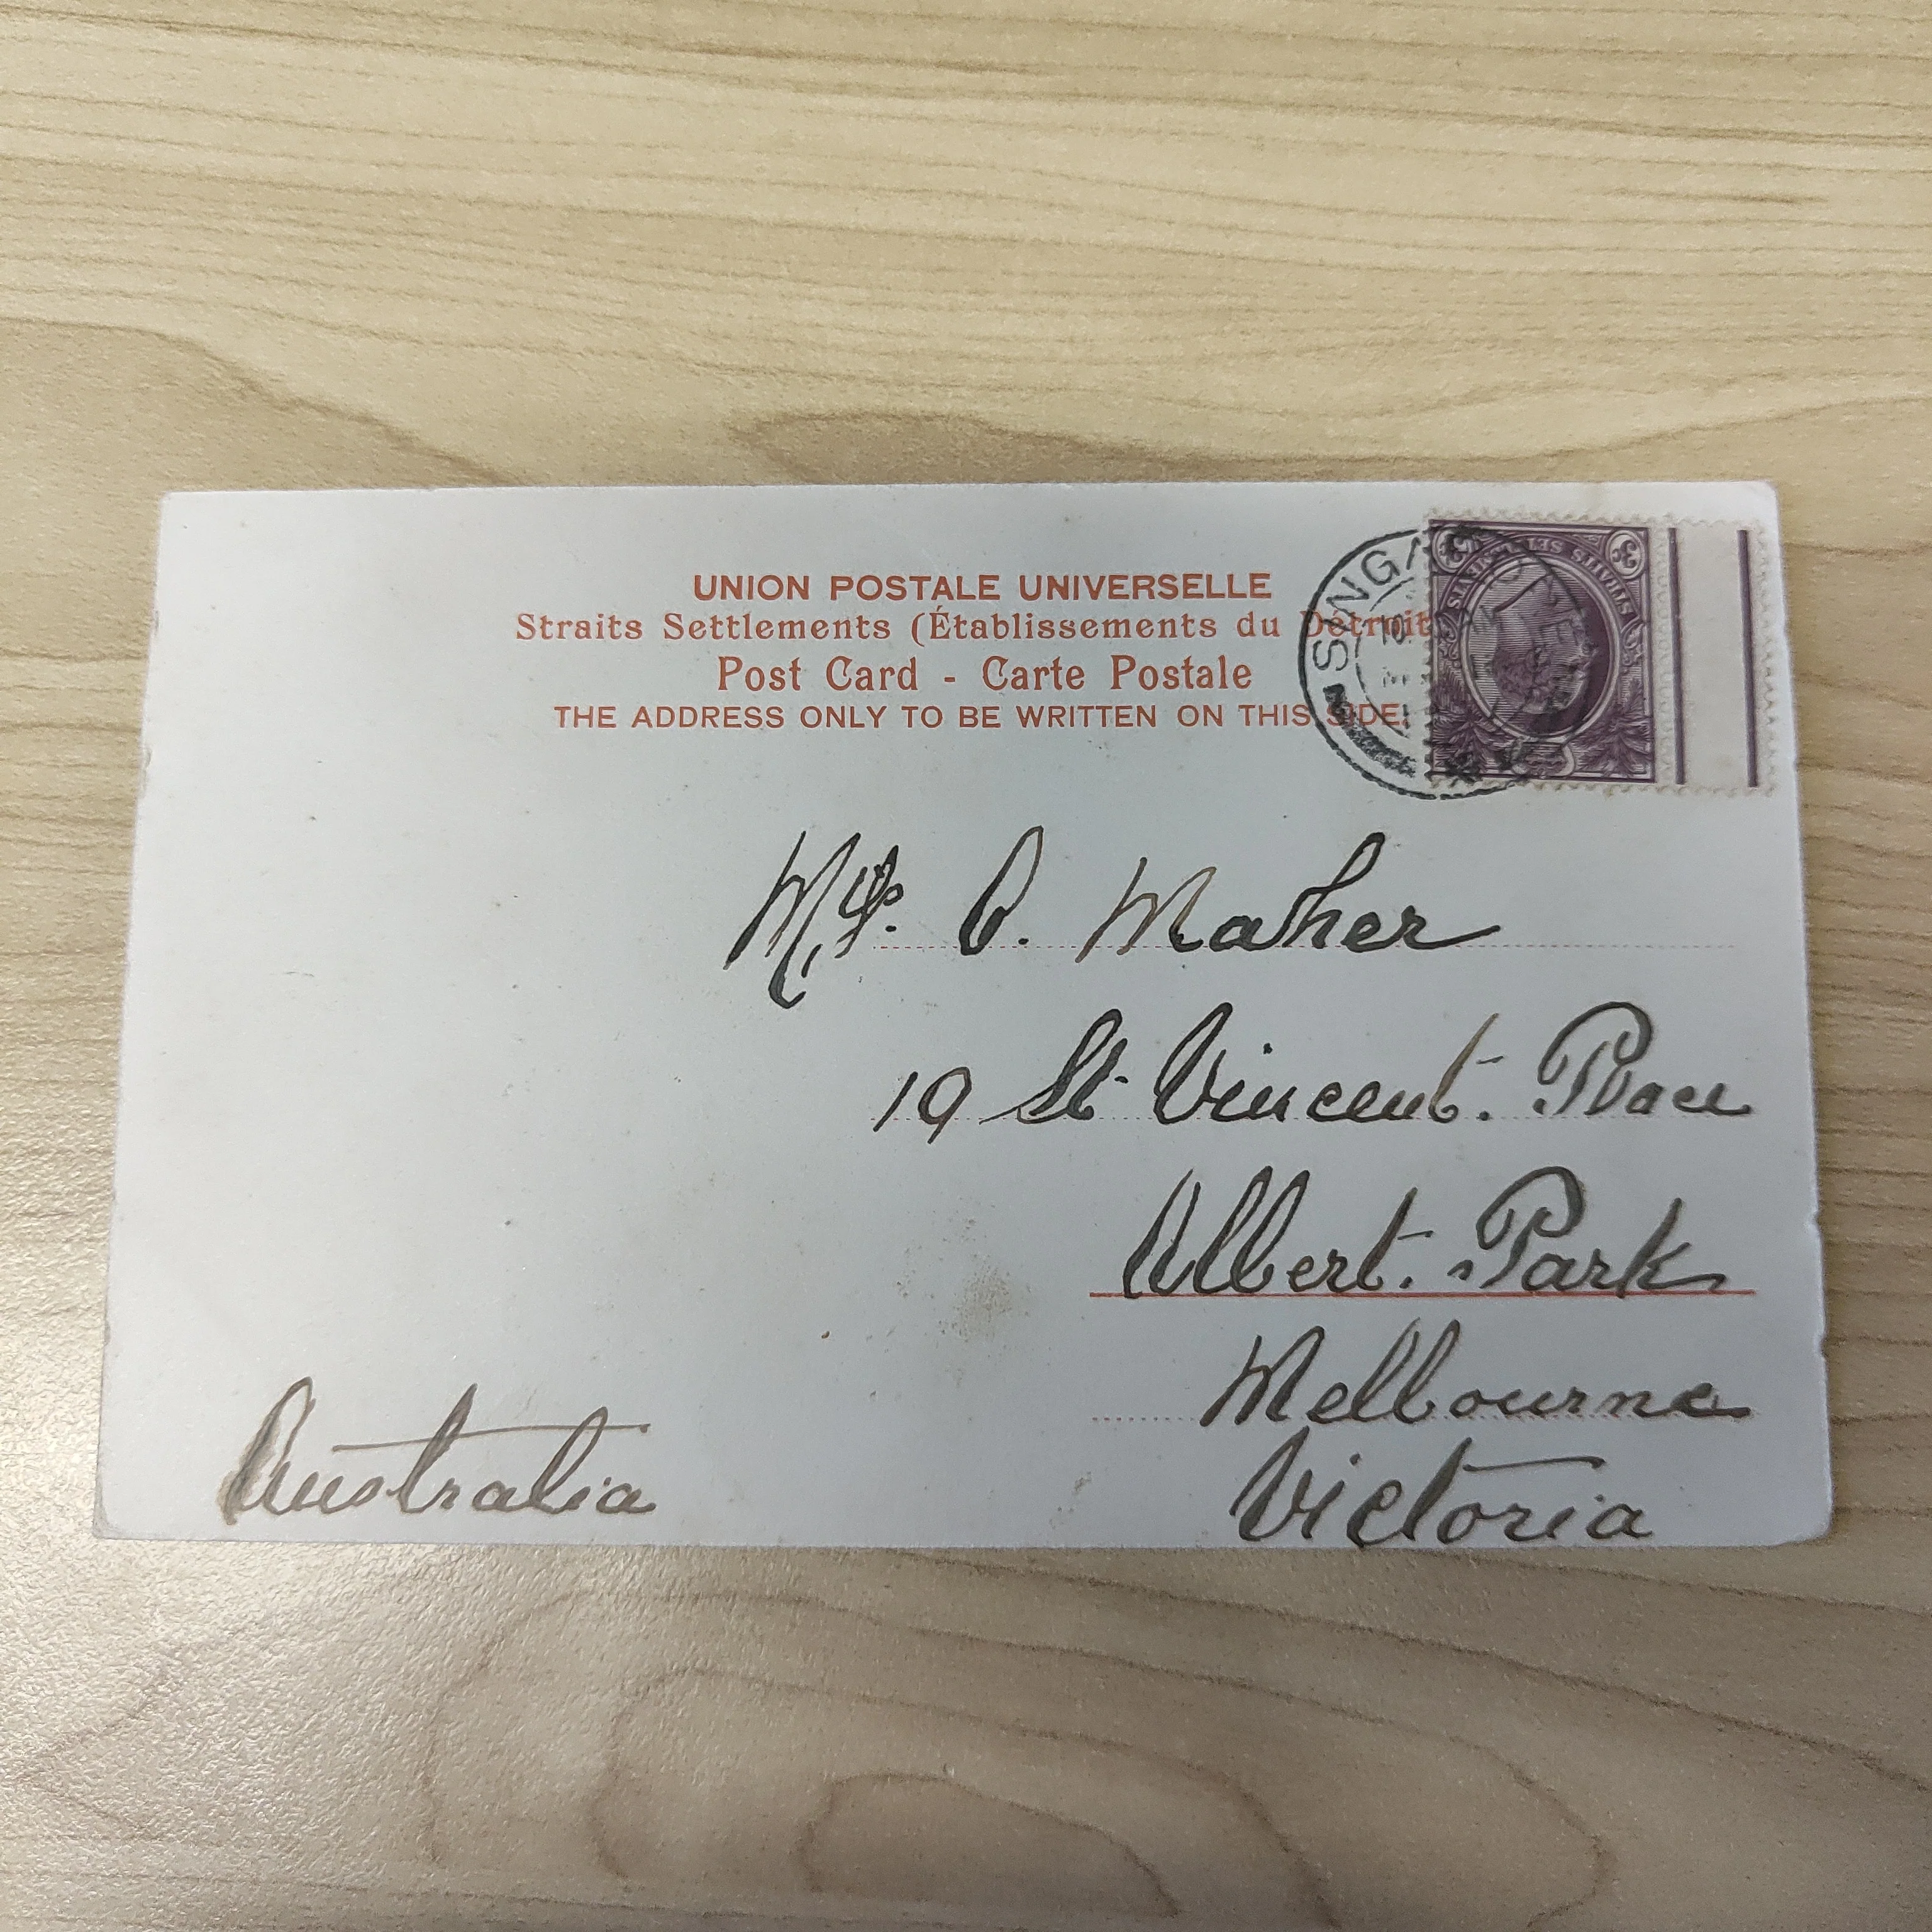 UNION POSTALE UNIVERSELLE
Straits Settlements (Établissements du Détroit
Post Card - Carte Postale
THE ADDRESS ONLY TO BE WRITTEN ON THIS SIDE.
SINGA
STRAITS SETTLEMENTS
3c
3c
Maher
19 St Vincent. Place
Albert. Park
Melbourne
Australia
Victoria